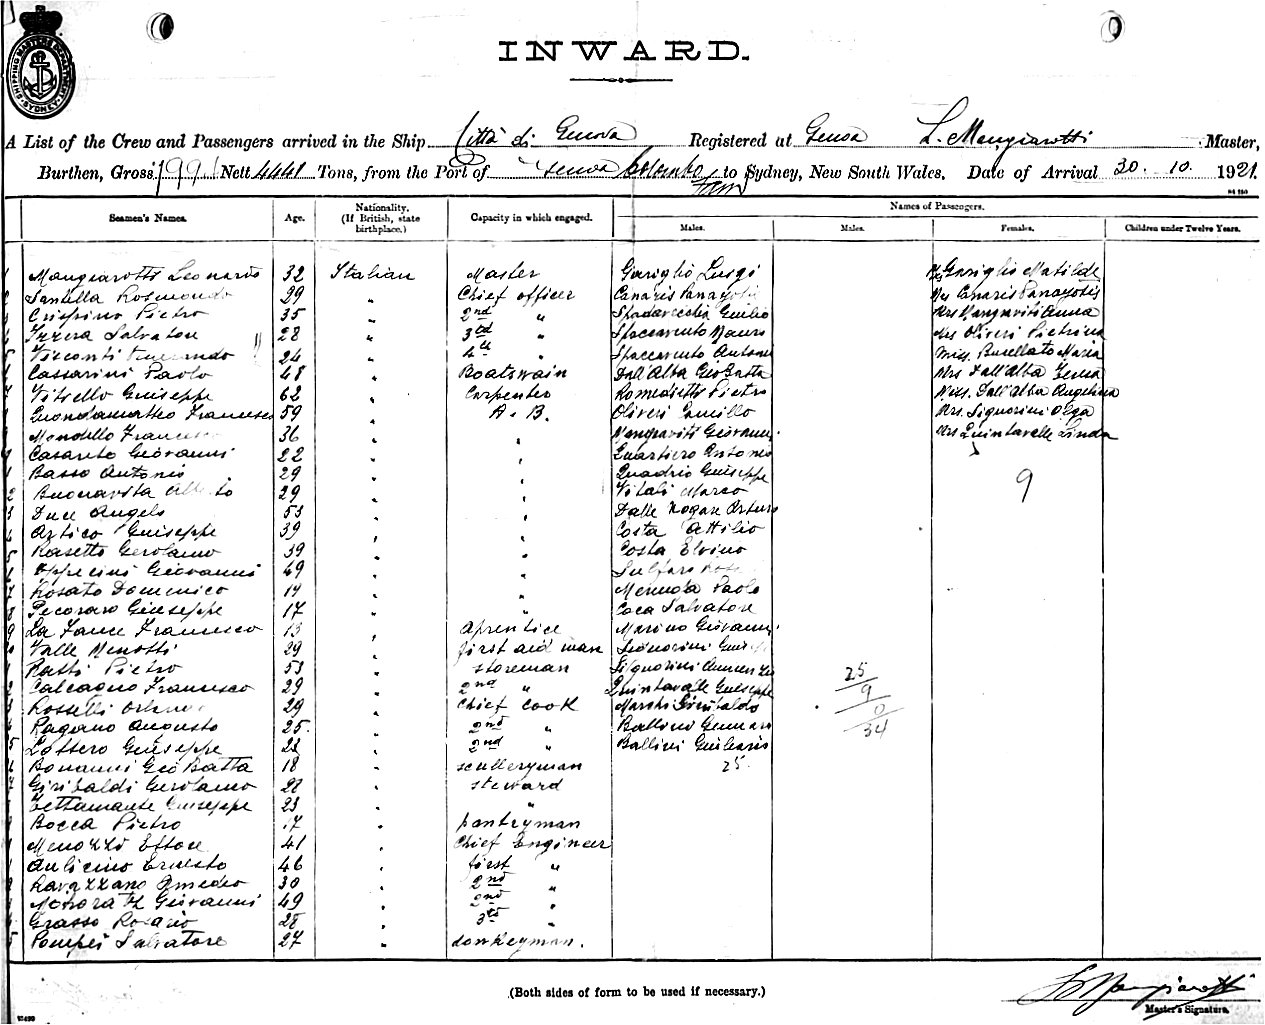 SHIPPING MASTERS DEPARTMENT SYDNEY
INWARD.
A List of the Crew and Passengers arrived in the Ship Città di Genova Registered at Genoa L. Mangiarotti Master,
Burthen, Gross Nett 4441 Tons, from the Port of Genova Colombo to Sydney, New South Wales. Date of Arrival 30. 10. 1921.
Seamen's Names. Age. Nationality. (If British, state birthplace.) Capacity in which engaged. Names of Passengers.
Males. Males. Females. Children under Twelve Years.
1 Mangiarotti Leonardo 32 Italian Master Gariglio Luigi Mrs Gariglio Matilde
2 Santilla Rosmondo 29 " Chief officer Canaris Panayotis Mrs Canaris Panayotis
3 Crispino Pietro 35 " 2nd " Spadavecchia Giulio Mrs Mangraviti Anna
4 Izzera Salvatore 28 " 3rd " Spaccavento Mauro Mrs Oliveri Pietrina
5 Visconti 24 " 4th " Spaccavento Antonio Miss. Busellato Maria
Cassarini Paolo 48 " Boatswain Dall'Alba Gio Batta Mrs Dall'Alba
7 Vitiello Guiseppe 62 " Carpenter Romedietti Pietro Miss. Dall'Alba Angelina
8 Giondamatteo Francesco 59 " A. B. Oliveri Camillo Mrs. Signorini Olga
9 Mondello Francesco 36 " " Mangraviti Giovanni Mrs Quintavalle Linda
Casareto Giovanni 22 " " Guartiero Antonio
1 Basso Antonio 29 " " Quadrio Guiseppe
2 Buonavita 29 " " Vitali Marco 9
3 Duce Angelo 53 " " Dalle Nogare Arturo
4 Artico Guiseppe 39 " " Costa Attilio
5 Rasetto Gerolamo 39 " " Costa Elvino
Giovanni 49 " "
7 Rosato Domenico 19 " " Paolo
8 Pecoraro Giuseppe 17 " " Coca Salvatore
9 La Fauce Francesco 13 " Aprentice Marino Giovanni
Valle Menotti 29 " first aid man Signorini
1 Ratti Pietro 53 " storeman Signorini 25
2 Calcagno Francesco 29 " 2nd " Quintavalle Guiseppe 9
3 Rosselli 29 " Chief cook Marchi Giribaldo 0
4 Pagano Augusto 25 " 2nd " Ballini Gennaro 34
5 Lottero Guiseppe 23 " 2nd " Ballini
6 Bonanni Gio Batta 18 " sculleryman 25.
7 Giribaldi Gerolamo 28 " steward
Tettamante Guiseppe 23 " "
Bocca Pietro 17 " pantryman
Menozzi Ettore 41 " Chief Engineer
1 Aulicino Ernesto 46 " first "
2 Ravazzano Amedeo 30 " 2nd "
3 Giovanni 49 " 2nd "
4 Grasso Rosario 28 " 3rd "
5 Pompei Salvatore 27 " donkeyman.
(Both sides of form to be used if necessary.)
L Mangiarotti
Master's Signature.